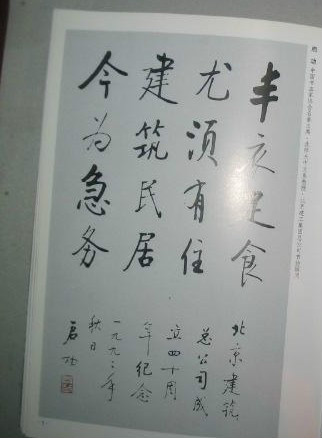 启功
丰衣足食
尤须有住
建筑民居
今为急务
北京建筑
总公司成
立四十周
年纪念
一九九二年
秋日
启功